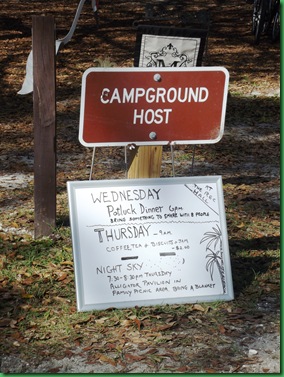 CAMPGROUND
HOST
WEDNESDAY
Potluck Dinner 6pm
BRING SOMETHING TO SHARE WITH 8 PEOPLE
THURSDAY - 9AM
COFFEE, TEA + BISCUITS
NIGHT SKY
7:30-8:30PM THURSDAY
ALLIGATOR PAVILION IN
FAMILY PICNIC AREA BRING A BLANKET